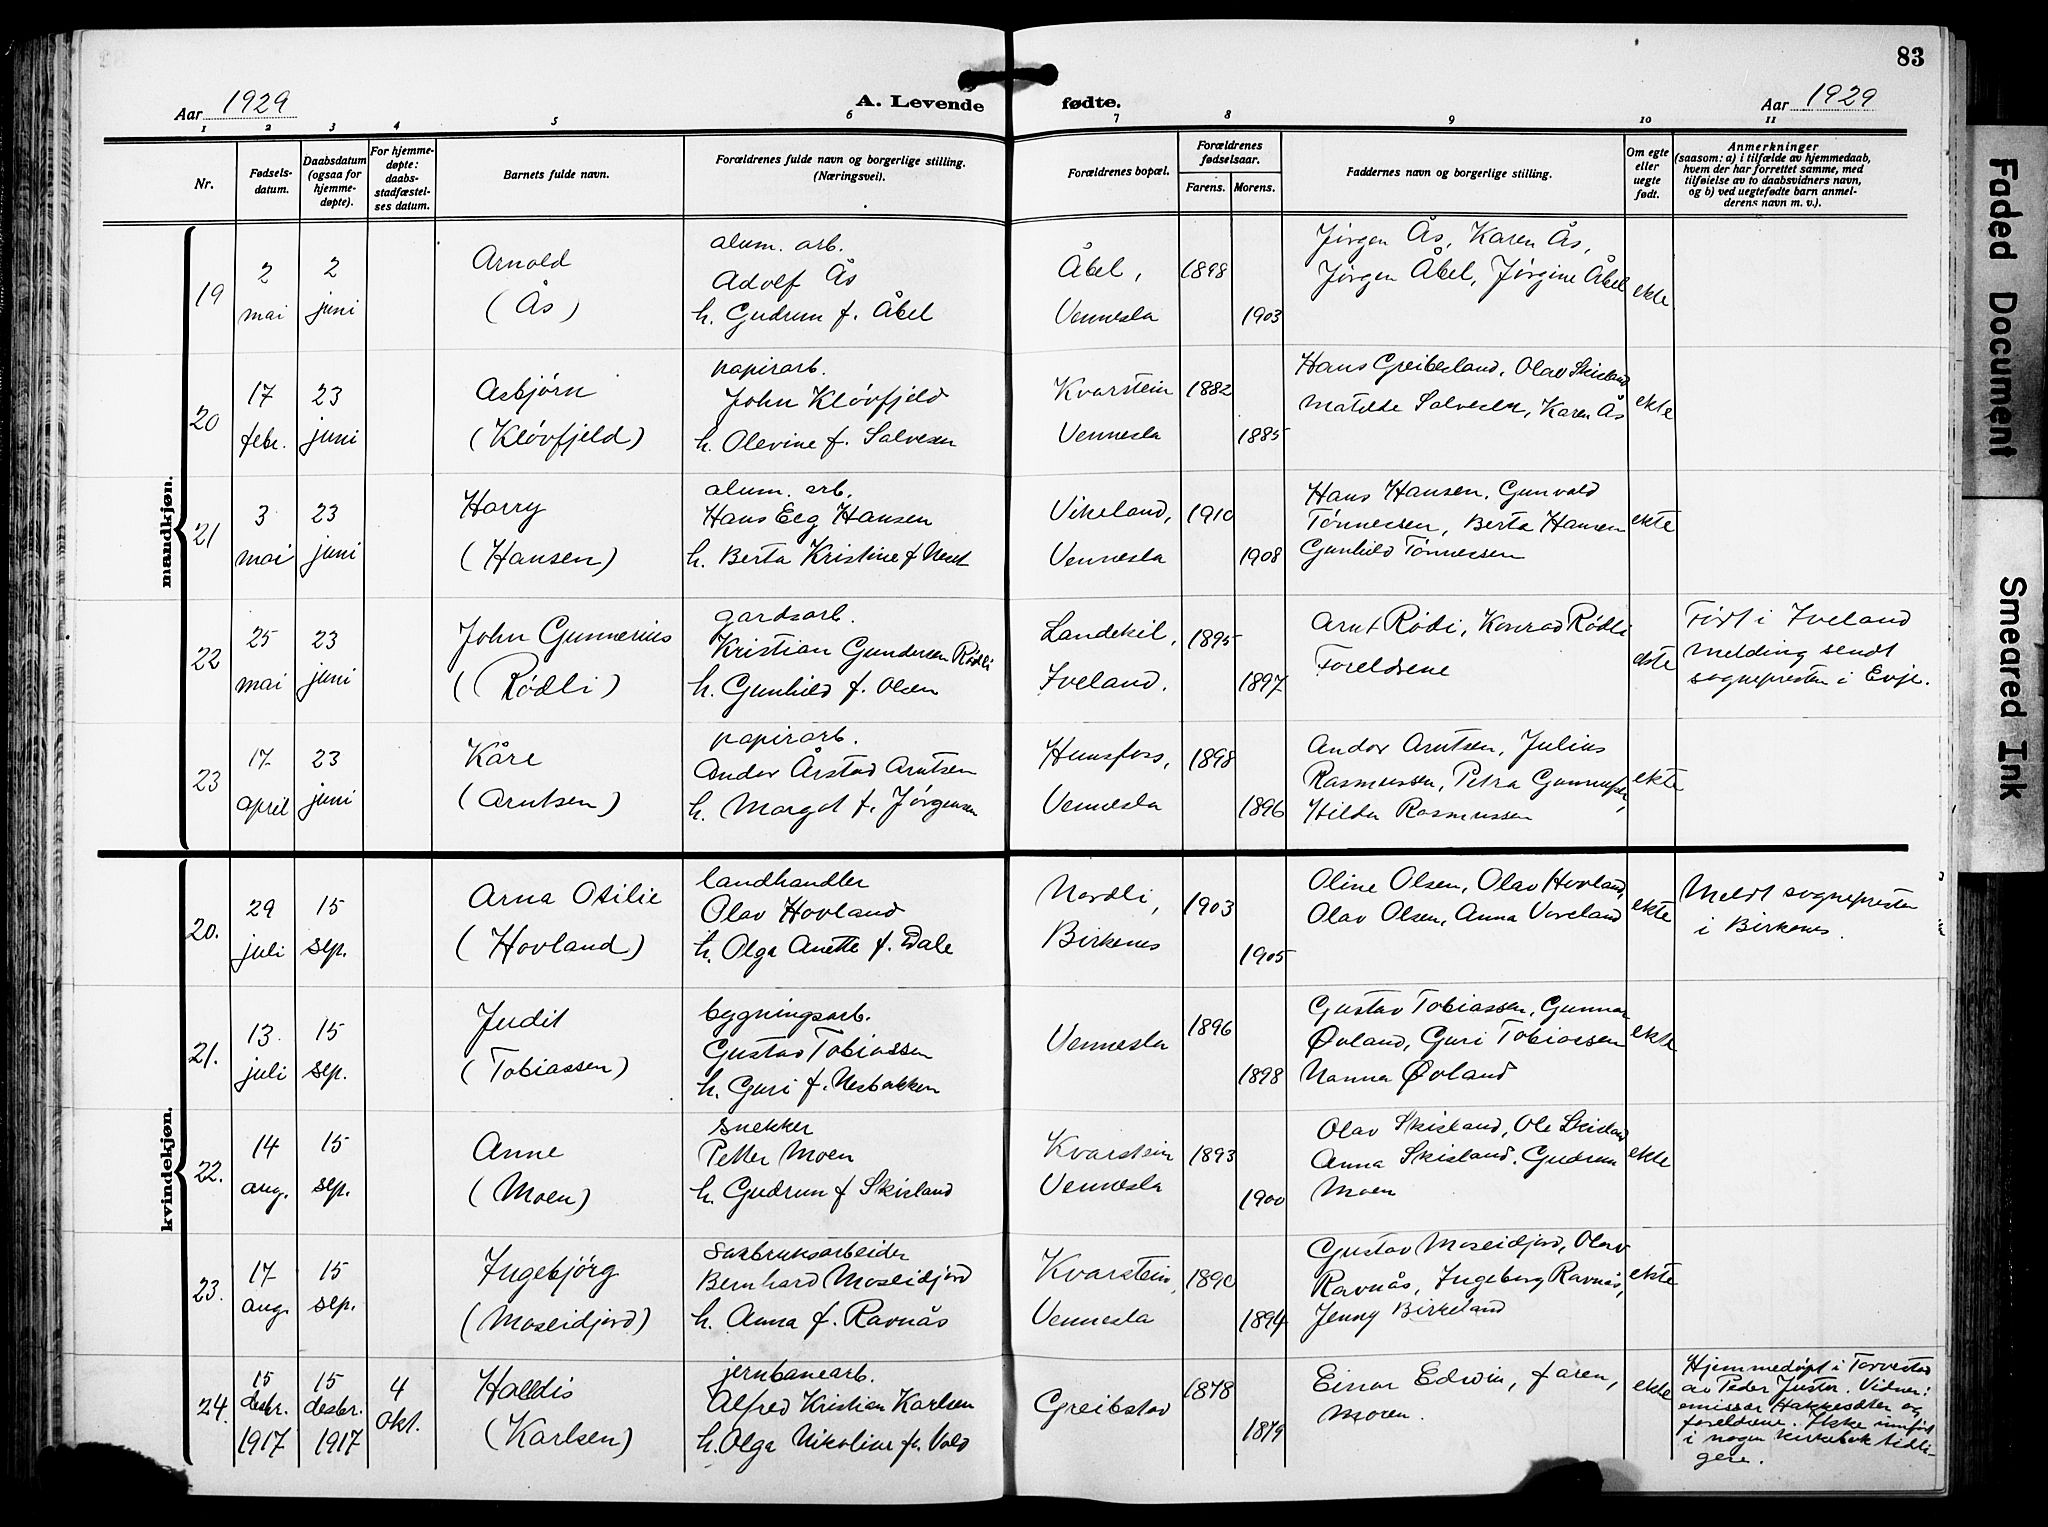 83
Aar 1929
A. Levende fødte.
Aar 1929
1 2 3 4 5 6 7 8 9 10 11
Nr.
Fødsels-
datum.
Daabsdatum
(ogsaa for
hjemme-
døpte).
For hjemme-
døpte:
daabs-
stadfæstel-
ses datum.
Barnets fulde navn.
Forældrenes fulde navn og borgerlige stilling.
(Næringsvei).
Forældrenes bopæl.
Forældrenes
fødselsaar.
Farens. Morens.
Faddernes navn og borgerlige stilling.
Om egte
eller
uegte
født.
Anmerkninger
(saasom: a) i tilfælde av hjemmedaab,
hvem der har forrettet samme, med
tilføielse av to daabsvidners navn,
og b) ved uegtefødte barn anmel-
derens navn m. v.).
mandkjøn.
19
2
mai
2
juni
Arnold
(Ås)
alum. arb.
Adolf Ås
h. Gudrun f. Åbel
Åbel,
Vennesla
1898
1903
Jørgen Ås, Karen Ås,
Jørgen Åbel, Jørgine Åbel
ekte
20
17
febr.
23
juni
Asbjørn
(Kløvfjeld)
papirarb.
John Kløvfjeld
h. Olevine f. Salvesen
Kvarstein
Vennesla
1882
1885
Hans Greibesland, Olav Skisland
Matilde Salvesen, Karen Ås
ekte
21
3
mai
23
juni
Harry
(Hansen)
alum. arb.
Hans Eeg Hansen
h. Berta Kristine f. Neset
Vikeland,
Vennesla
1910
1908
Hans Hansen, Gunvald
Tønnessen, Berta Hansen
Gunhild Tønnessen
ekte
22
25
mai
23
juni
John Gunnerius
(Rødli)
gardsarb.
Kristian Gundersen Rødli
h. Gunhild f. Olsen
Landekil,
Iveland.
1895
1897
Arnt Rødli, Konrad Rødli
Foreldrene
ekte
Født i Iveland
melding sendt
sognepresten i Evje.
23
17
april
23
juni
Kåre
(Arntsen)
papirarb.
Andor Årstad Arntsen
h. Margot f. Jørgensen
Hunsfoss,
Vennesla
1898
1896
Andor Arntsen, Julius
Rasmussen, Petra
Hilda Rasmussen
ekte
kvindekjøn.
20.
29
juli
15
sep.
Arna Otilie
(Hovland)
landhandler
Olav Hovland
h. Olga Anette f. Dale
Nordli,
Birkenes
1903
1905
Oline Olsen, Olav Hovland,
Olav Olsen, Anna Voreland
ekte
Meldt sognepresten
i Birkenes.
21.
13
juli
15
sep.
Judit
(Tobiassen)
bygningsarb.
Gustav Tobiassen
h. Guri f. Nesbakken
Vennesla
1896
1898
Gustav Tobiassen, Gunnar
Øvland, Guri Tobiassen
Nanna Øvland
ekte
22.
14
aug.
15
sep.
Anne
(Moen)
snekker
Petter Moen
h. Gudrun f. Skisland
Kvarstein
Vennesla
1893
1900
Olav Skisland, Ole Skisland
Anna Skisland. Gudrun
Moen
ekte
23.
17
aug.
15
sep.
Ingebjørg
(Moseidjord)
sagbruksarbeider
Bernhard Moseidjord
h. Anna f. Ravnås
Kvarstein,
Vennesla
1890
1894
Gustav Moseidjord, Olav
Ravnås, Ingeborg Ravnås,
Jenny Birkeland
ekte
24.
15
desbr.
1917
15
desbr.
1917
4
okt.
Halldis
(Karlsen)
jernbanearb.
Alfred Kristian Karlsen
h. Olga Nikoline f. Vold
Greibstad
1878
1879
Einar Edwin, faren,
moren.
ekte
Hjemmedøpt i Torvestad
av Peder Juster. Vidner:
emissær og
foreldrene. Ikke innført
i nogen kirkebok tidli-
gere.
Faded Document
Smeared Ink